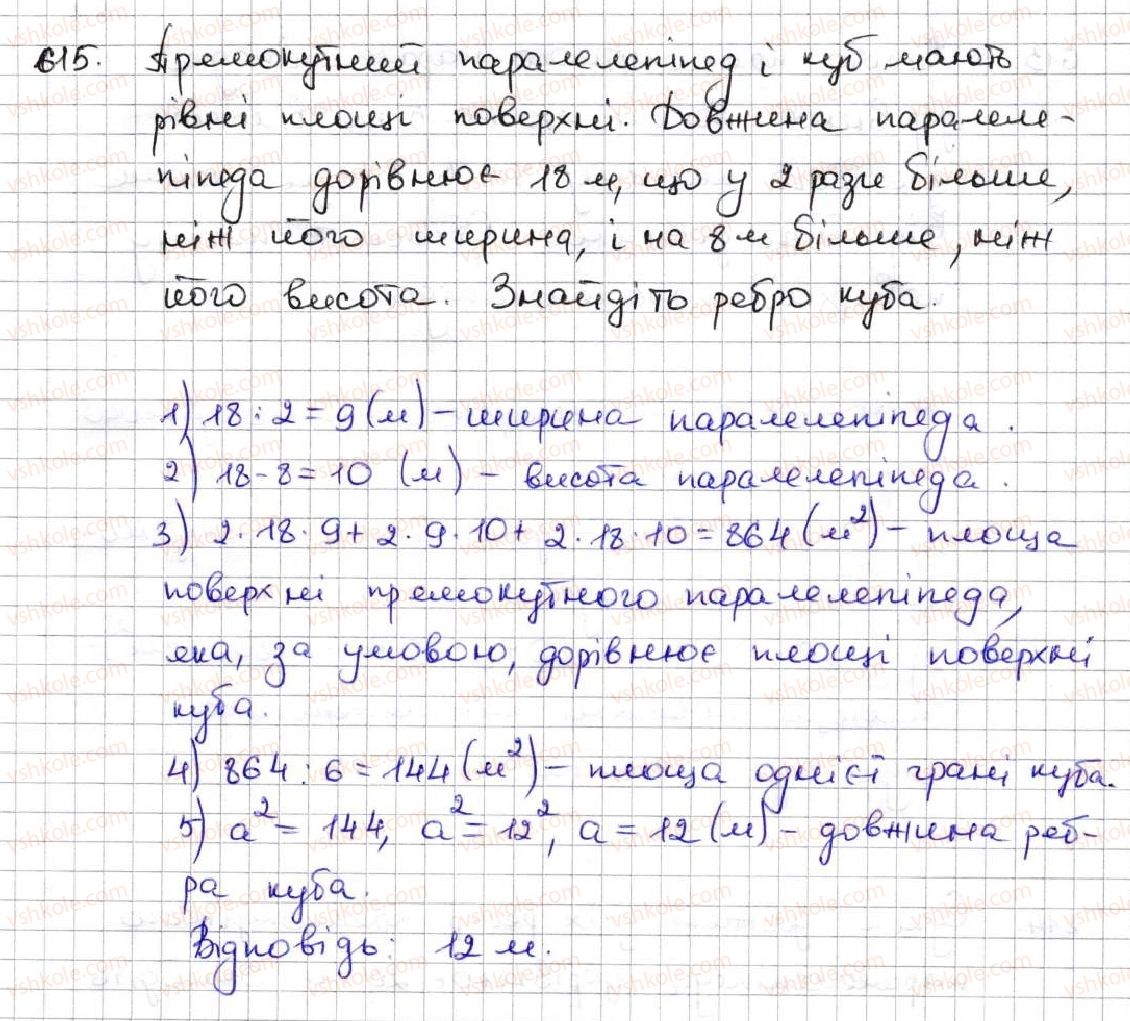 615. Прямокутний паралелепіпед і куб мають
рівні площі поверхні. Довжина паралеле-
піпеда дорівнює 18 м, що у 2 рази більше,
ніж його ширина, і на 8 м більше, ніж
його висота. Знайдіть ребро куба.
1) 18 : 2 = 9 (м) – ширина паралелепіпеда.
2) 18 - 8 = 10 (м) – висота паралелепіпеда.
3) 2 · 18 · 9 + 2 · 9 · 10 + 2 · 18 · 10 = 864 (м²) – площа
поверхні прямокутного паралелепіпеда,
яка, за умовою, дорівнює площі поверхні
куба.
4) 864 : 6 = 144 (м²) – площа однієї грані куба.
5) a² = 144, a² = 12², a = 12 (м) – довжина реб-
ра куба.
Відповідь: 12 м.